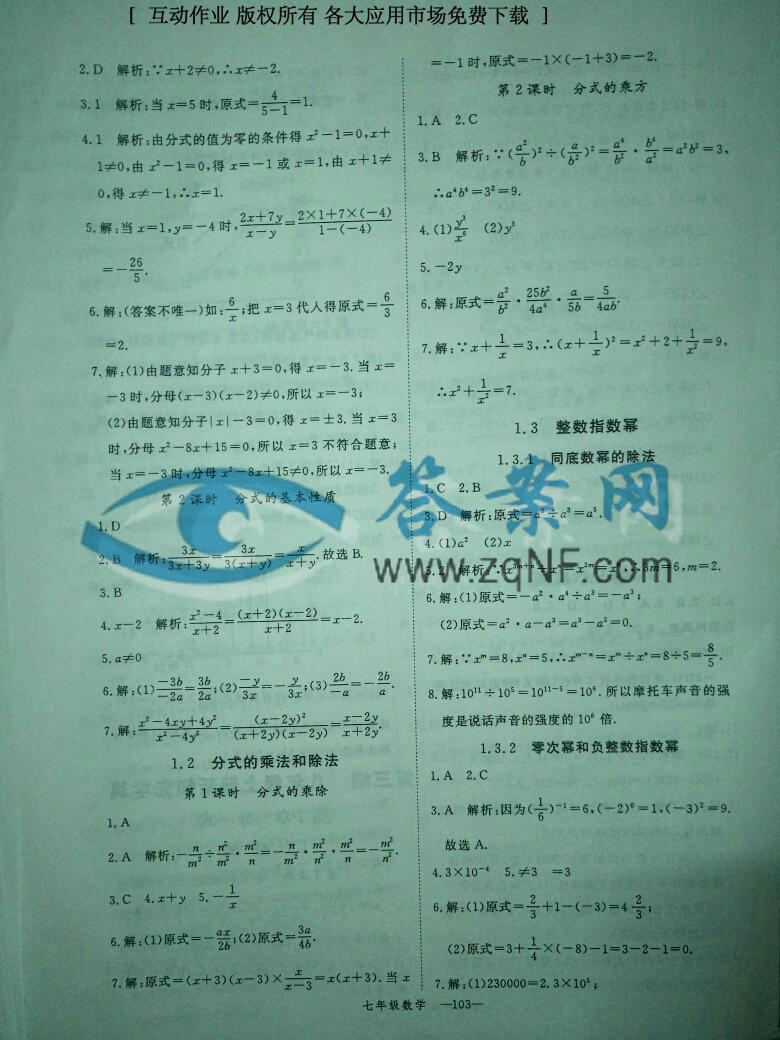 [ 互动作业 版权所有 各大应用市场免费下载 ]
2.D 解析:∵x+2≠0,∴x≠-2.
3.1 解析:当x=5时,原式=4/(5-1)=1.
4.1 解析:由分式的值为零的条件得 x²-1=0,x+
1≠0,由 x²-1=0,得 x=-1 或 x=1,由 x+1≠
0,得 x≠-1,∴x=1.
5.解:当x=1,y=-4时,(2x+7y)/(x-y)=(2×1+7×(-4))/(1-(-4))
=-26/5.
6.解:(答案不唯一)如:6/x;把x=3代入得原式=6/3
=2.
7.解:(1)由题意知分子 x+3=0,得 x=-3.当 x=
-3时,分母(x-3)(x-2)≠0,所以 x=-3;
(2)由题意知分子|x|-3=0,得 x=±3.当 x=3
时,分母 x²-8x+15=0,所以 x=3 不符合题意;
当 x=-3时,分母 x²-8x+15≠0,所以 x=-3.
第2课时 分式的基本性质
1.D
2.B 解析:3x/(3x+3y)=3x/(3(x+y))=x/(x+y).故选B.
3.B
4.x-2 解析:(x²-4)/(x+2)=((x+2)(x-2))/(x+2)=x-2.
5.a≠0
6.解:(1)(-3b)/(-2a)=3b/2a;(2)(-y)/3x=-y/3x;(3)2b/(-a)=-2b/a.
7.解:(x²-4xy+4y²)/(x²-4y²)=(x-2y)²/((x+2y)(x-2y))=(x-2y)/(x+2y).
1.2 分式的乘法和除法
第1课时 分式的乘除
1.A
2.A 解析:-n/m²÷n²/m³·m²/n²=-n/m²·m³/n²·m²/n
3.C 4.x+y 5.-1/x
6.解:(1)原式=-ax/2b;(2)原式=3a/4b.
7.解:原式=(x+3)(x-3)×x/(x-3)=x(x+3).当x
=-1时,原式=-1×(-1+3)=-2.
第2课时 分式的乘方
1.A 2.C
3.B 解析:∵(a²/b)²÷(a/b²)²=a⁴/b²·b⁴/a²=a²b²=3,
∴a⁴b⁴=3²=9.
4.(1)y³/x⁶ (2)y³
5.-2y
6.解:原式=a²/b²·25b²/4a⁴·a/5b=5/4ab.
7.解:∵x+1/x=3,∴(x+1/x)²=x²+2+1/x²=9,
∴x²+1/x²=7.
1.3 整数指数幂
1.3.1 同底数幂的除法
1.C 2.B
3.D 解析:原式=a⁸÷a³=a⁵.
4.(1)a² (2)x
5.2 3m=6,m=2.
6.解:(1)原式=-a²·a⁴÷a³=-a³;
(2)原式=a²·a-a³=a³-a³=0.
7.解:∵xᵐ=8,xⁿ=5,∴xᵐ⁻ⁿ=xᵐ÷xⁿ=8÷5=8/5.
8.解:10¹¹÷10⁵=10¹¹⁻⁵=10⁶.所以摩托车声音的强
度是说话声音的强度的10⁶倍.
1.3.2 零次幂和负整数指数幂
1.A 2.C
3.A 解析:因为(1/6)⁻¹=6,(-2)⁰=1,(-3)²=9.
故选A.
4.3×10⁻⁴ 5.≠3 =3
6.解:(1)原式=2/3+1-(-3)=4 2/3;
(2)原式=3+1/4×(-8)-1=3-2-1=0.
7.解:(1)230000=2.3×10⁵;
七年级数学 —103—
答案网
www.zqNF.com